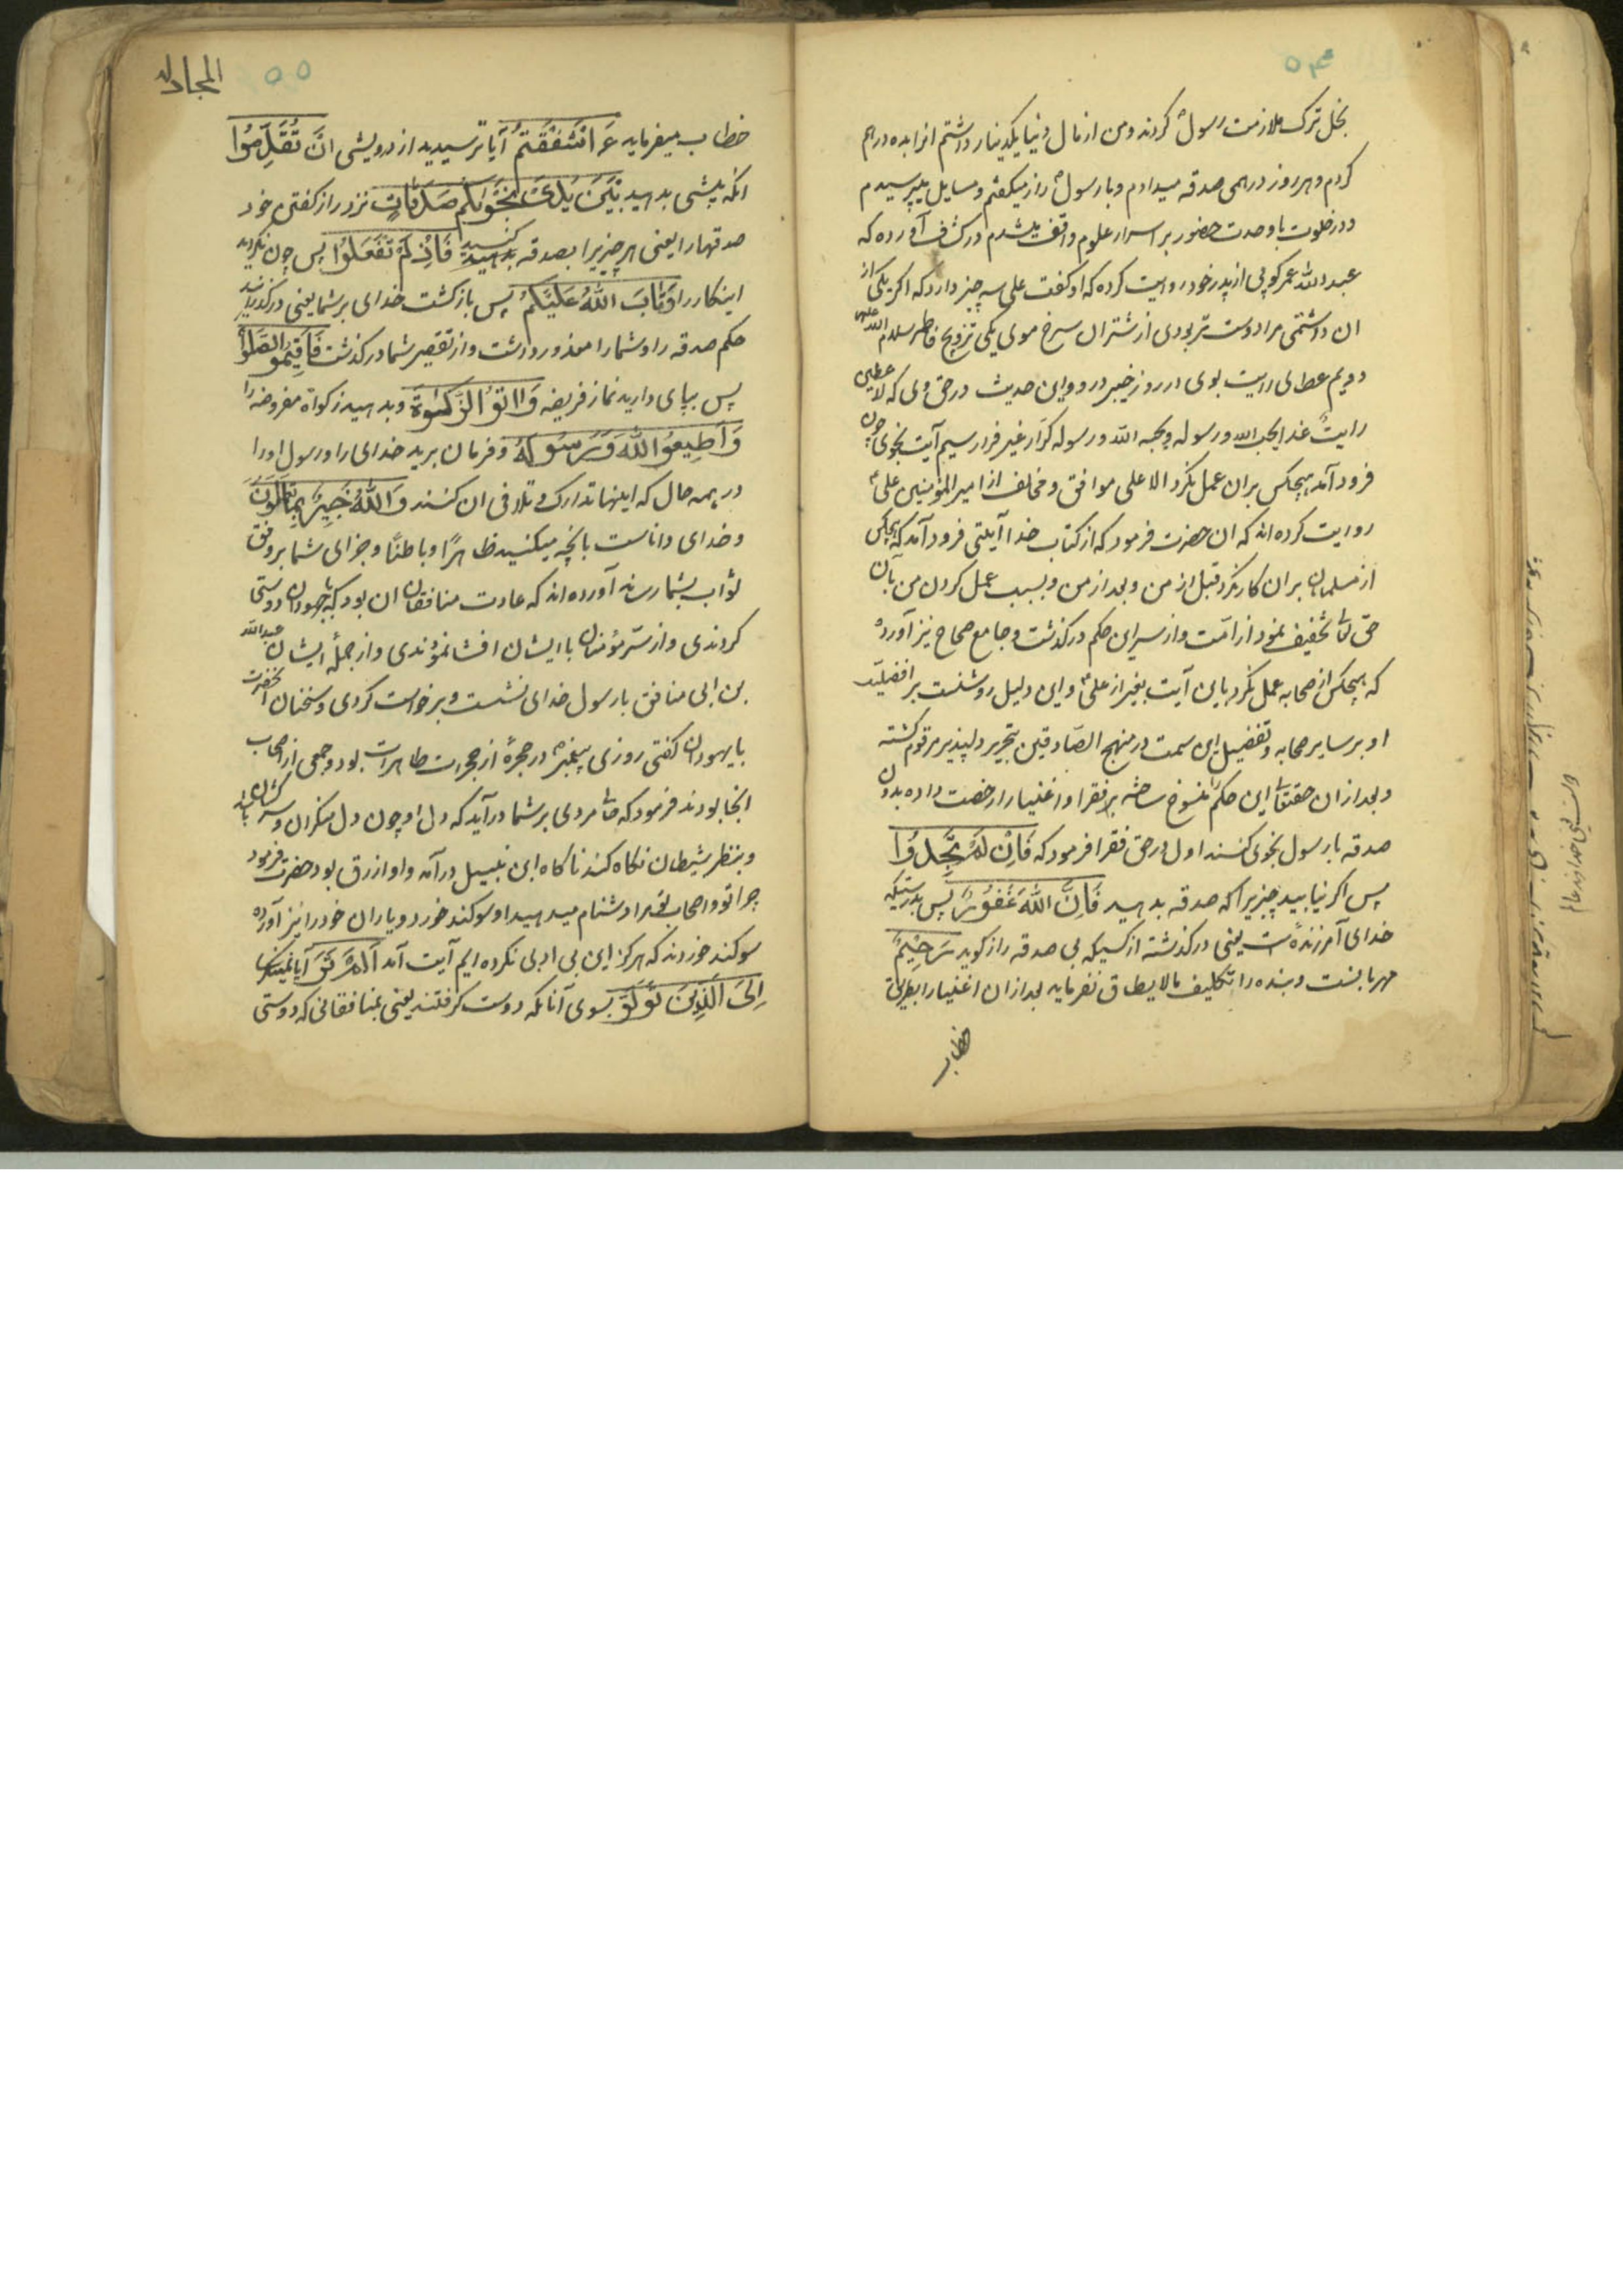 ۵۴
بخل ترک ملازمت رسول کردند و من از مال دنیا یکدینار داشتم انرا بده درهم
کردم و هر روز درهمی صدقه میدادم و با رسول راز میکفتم و مسایل میپرسیدم
و در خلوت با وحدت حضور بر اسرار علوم واقف میشدم و در کشاف آورده که
عبدالله عمر کوفی از پدر خود روایت کرده که او کفت علی سه چیز دارد که اکر یکی از
ان داشتمی مرا دوست تر بودی از شتران سرخ موی یکی تزویج فاطمه سلام الله علیها
دویم عطای رایت بوی در روز خیبر و ورود این حدیث در حق وی که لاعطین
رایت غدا یحب الله و رسوله و یحبه الله و رسوله کرار غیر فرار سیم آیت نجوی چون
فرود آمد هیچکس بران عمل نکرد الا علی موافق و مخالف از امیر المؤمنین علی
روایت کرده اند که ان حضرت فرمود که از کتاب خدا آیتی فرود آمد که هیچکس
از مسلمانان بران کار نکرد قبل از من و بعد از من و بسبب عمل کردن من بآن
حق تعالی تخفیف نمود از امت و از سر این حکم در کذشت و جامع صحاح نیز آورده
که هیچکس از صحابه عمل نکرد باین آیت بغیر از علی و این دلیل روشنست بر افضلیت
او بر سایر صحابه و تفضیل این سمت در منهج الصادقین بتحریر دلپذیر مرقوم کشته
و بعد از ان حقتعالی این حکم را منسوخ ساخته بر فقرا و اغنیا را رخصت داده بدون
صدقه با رسول نجوی کنند اول در حق فقرا فرمود که فَاِنْ لَمْ تَجِدُوا
پس اکر نیابید چیزیرا که صدقه بدهید فَاِنَّ اللهَ غَفُورٌ پس بدرستیکه
خدای آمرزنده است یعنی درکذشته از کسیکه بی صدقه راز کوید رَحِیمٌ
مهربانست و بنده را تکلیف مالایطاق نفرماید بعد از ان اغنیا را بطریق
خطاب
المجادله
۵۵
خطاب میفرماید ءَاَشْفَقْتُمْ آیا ترسیدید از درویشی اَنْ تُقَدِّمُوا
انکه پیشی بدهید بَیْنَ یَدَیْ نَجْوٰیکُمْ صَدَقَاتٍ نزد راز کفتن خود
صدقهها را یعنی هر چیزیرا بصدقه بدهید کنید فَاِذْ لَمْ تَفْعَلُوا پس چون نکردید
اینکار را وَتَابَ اللهُ عَلَیْکُمْ پس باز کشت خدای بر شما یعنی درکذرانید
حکم صدقه را و شما را معذور داشت و از تقصیر شما درکذشت فَاَقِیمُوا الصَّلٰوةَ
پس بپای دارید نماز فریضه وَاٰتُوا الزَّکٰوةَ و بدهید زکواة مفروضه را
وَاَطِیعُوا اللهَ وَرَسُولَهُ و فرمان برید خدای را و رسول او را
در همه حال که اینها تدارک و تلافی ان کنند وَاللهُ خَبِیرٌ بِمَا تَعْمَلُونَ
و خدای داناست بانچه میکنید ظاهرًا و باطنًا و جزای شما بر وفق
ثواب بشما رساند آورده اند که عادت منافقان ان بود که با جهودان دوستی
کردندی و از سر مؤمنان با ایشان افشا نمودندی و از جمله ایشان عبدالله
بن ابی منافق با رسول خدای نشست و برخواست کردی و سخنان آنحضرت
با یهودان کفتی روزی پیغمبر در حجرۀ از حجرات طاهرات بود و جمعی از اصحاب
انجا بودند فرمود که حالا مردی بر شما درآید که دل او چون دل منکران و سرکشان باشد
و بنظر شیطان نکاه کند ناکاه ابن نبتیل درآمد و او ازرق بود حضرت فرمود
چرا تو و اصحاب تو مرا دشنام میدهید او سوکند خورد و یاران خود را نیز آورده
سوکند خوردند که هرکز این بی ادبی نکرده ایم آیت آمد اَلَمْ تَرَ آیا نمینکری
اِلَی الَّذِینَ تَوَلَّوْا بسوی آنانکه دوست کرفتند یعنی منافقانی که دوستی